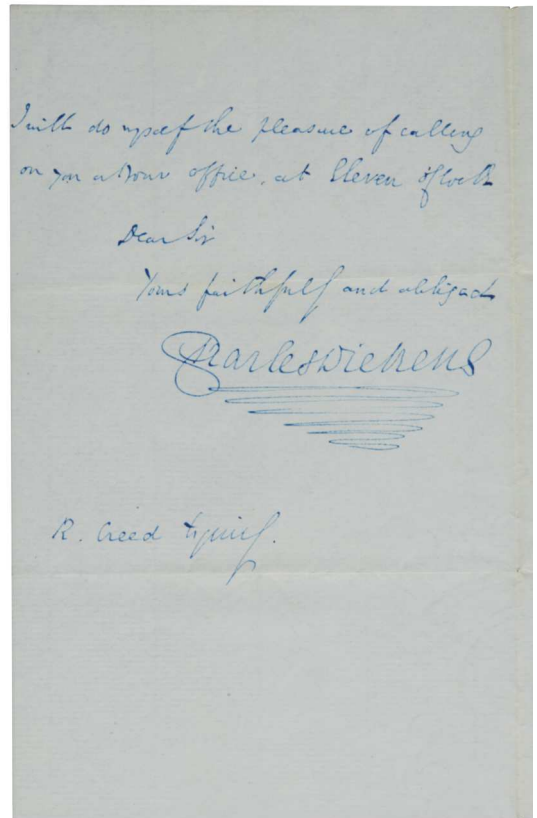 I will do myself the pleasure of calling
on you at your office, at Eleven o'Clock
Dear Sir
Yours faithfully and obliged
Charles Dickens
R. Creed Esquire.